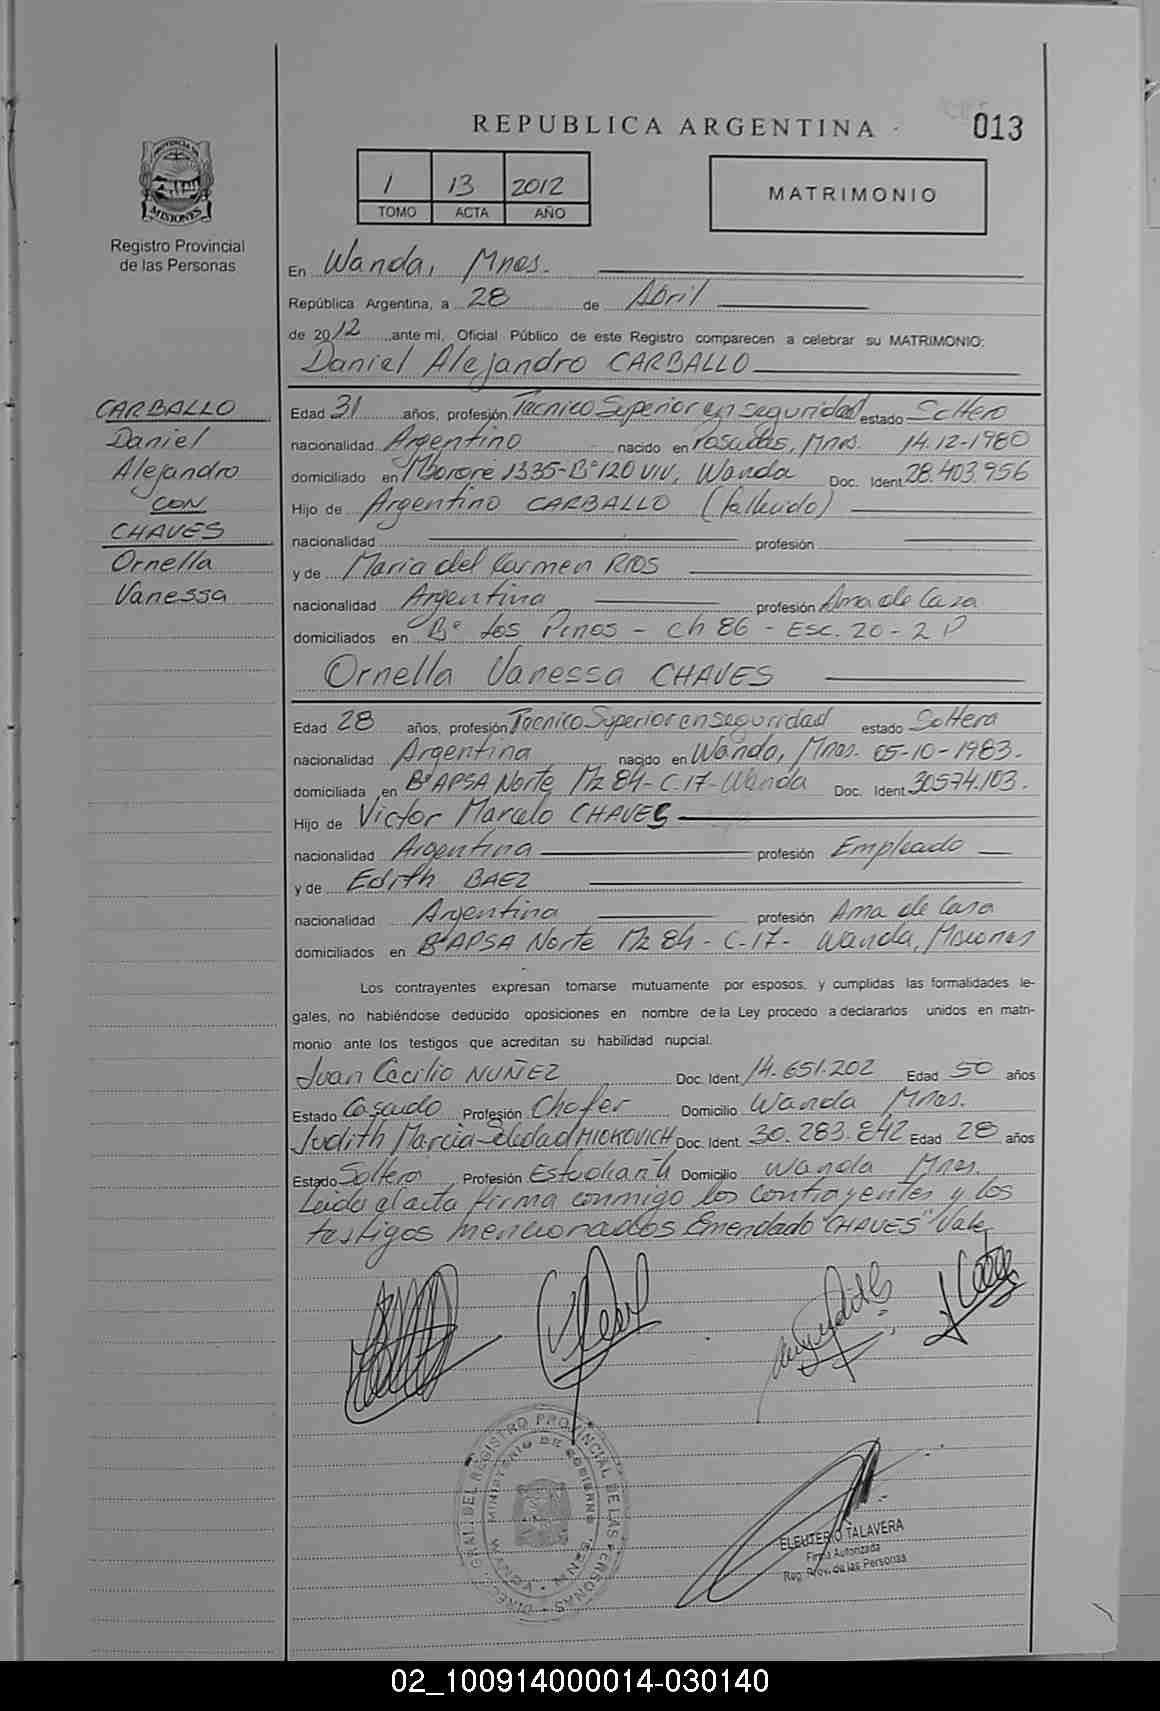 REPUBLICA ARGENTINA
013
PROVINCIA DE
MISIONES
Registro Provincial
de las Personas
1 13 2012
TOMO ACTA AÑO
MATRIMONIO
En Wanda, Mnes.
República Argentina, a 28 de Abril
de 2012 ante mi, Oficial Público de este Registro comparecen a celebrar su MATRIMONIO:
Daniel Alejandro CARBALLO
CARBALLO
Daniel
Alejandro
CON
CHAVES
Ornella
Vanessa
Edad 31 años, profesión Tecnico Superior en seguridad estado Soltero
nacionalidad Argentino nacido en Posadas, Mnes. 14-12-1980
domiciliado en Mbororé 1335-Bº 120 VIV, Wanda Doc. Ident. 28.403.956
Hijo de Argentino CARBALLO (fallecido)
nacionalidad profesión
y de Maria del Carmen RIOS
nacionalidad Argentina profesión Ama de Casa
domiciliados en Bº Los Pinos - Ch 86 - Esc. 20 - 2 P
Ornella Vanessa CHAVES
Edad 28 años, profesión Tecnico Superior en seguridad estado Soltera
nacionalidad Argentina nacido en Wanda, Mnes. 05-10-1983.
domiciliada en Bº APSA Norte Mz 84 - C. 17 - Wanda Doc. Ident. 30574.103.
Hijo de Victor Marcelo CHAVES
nacionalidad Argentina profesión Empleado
y de Edith BAEZ
nacionalidad Argentina profesión Ama de Casa
domiciliados en Bº APSA Norte Mz 84 - C-17 - Wanda, Misiones
Los contrayentes expresan tomarse mutuamente por esposos, y cumplidas las formalidades le-
gales, no habiéndose deducido oposiciones en nombre de la Ley procedo a declararlos unidos en matri-
monio ante los testigos que acreditan su habilidad nupcial.
Juan Cecilio NUÑEZ Doc. Ident. 14.651.202 Edad 50 años
Estado Casado Profesión Chofer Domicilio Wanda Mnes.
Judith Marcia Soledad MIOKOVICH Doc. Ident. 30.283.842 Edad 28 años
Estado Soltera Profesión Estudiante Domicilio Wanda Mnes.
Leida el acta firma conmigo los contrayentes y los
testigos mencionados Emendado "CHAVES" Vale
DIREC. GRAL. DEL REGISTRO PROVINCIAL DE LAS PERSONAS
MINISTERIO DE GOBIERNO
ELEUTERIO TALAVERA
Firma Autorizada
Reg. Prov. de las Personas
02_100914000014-030140